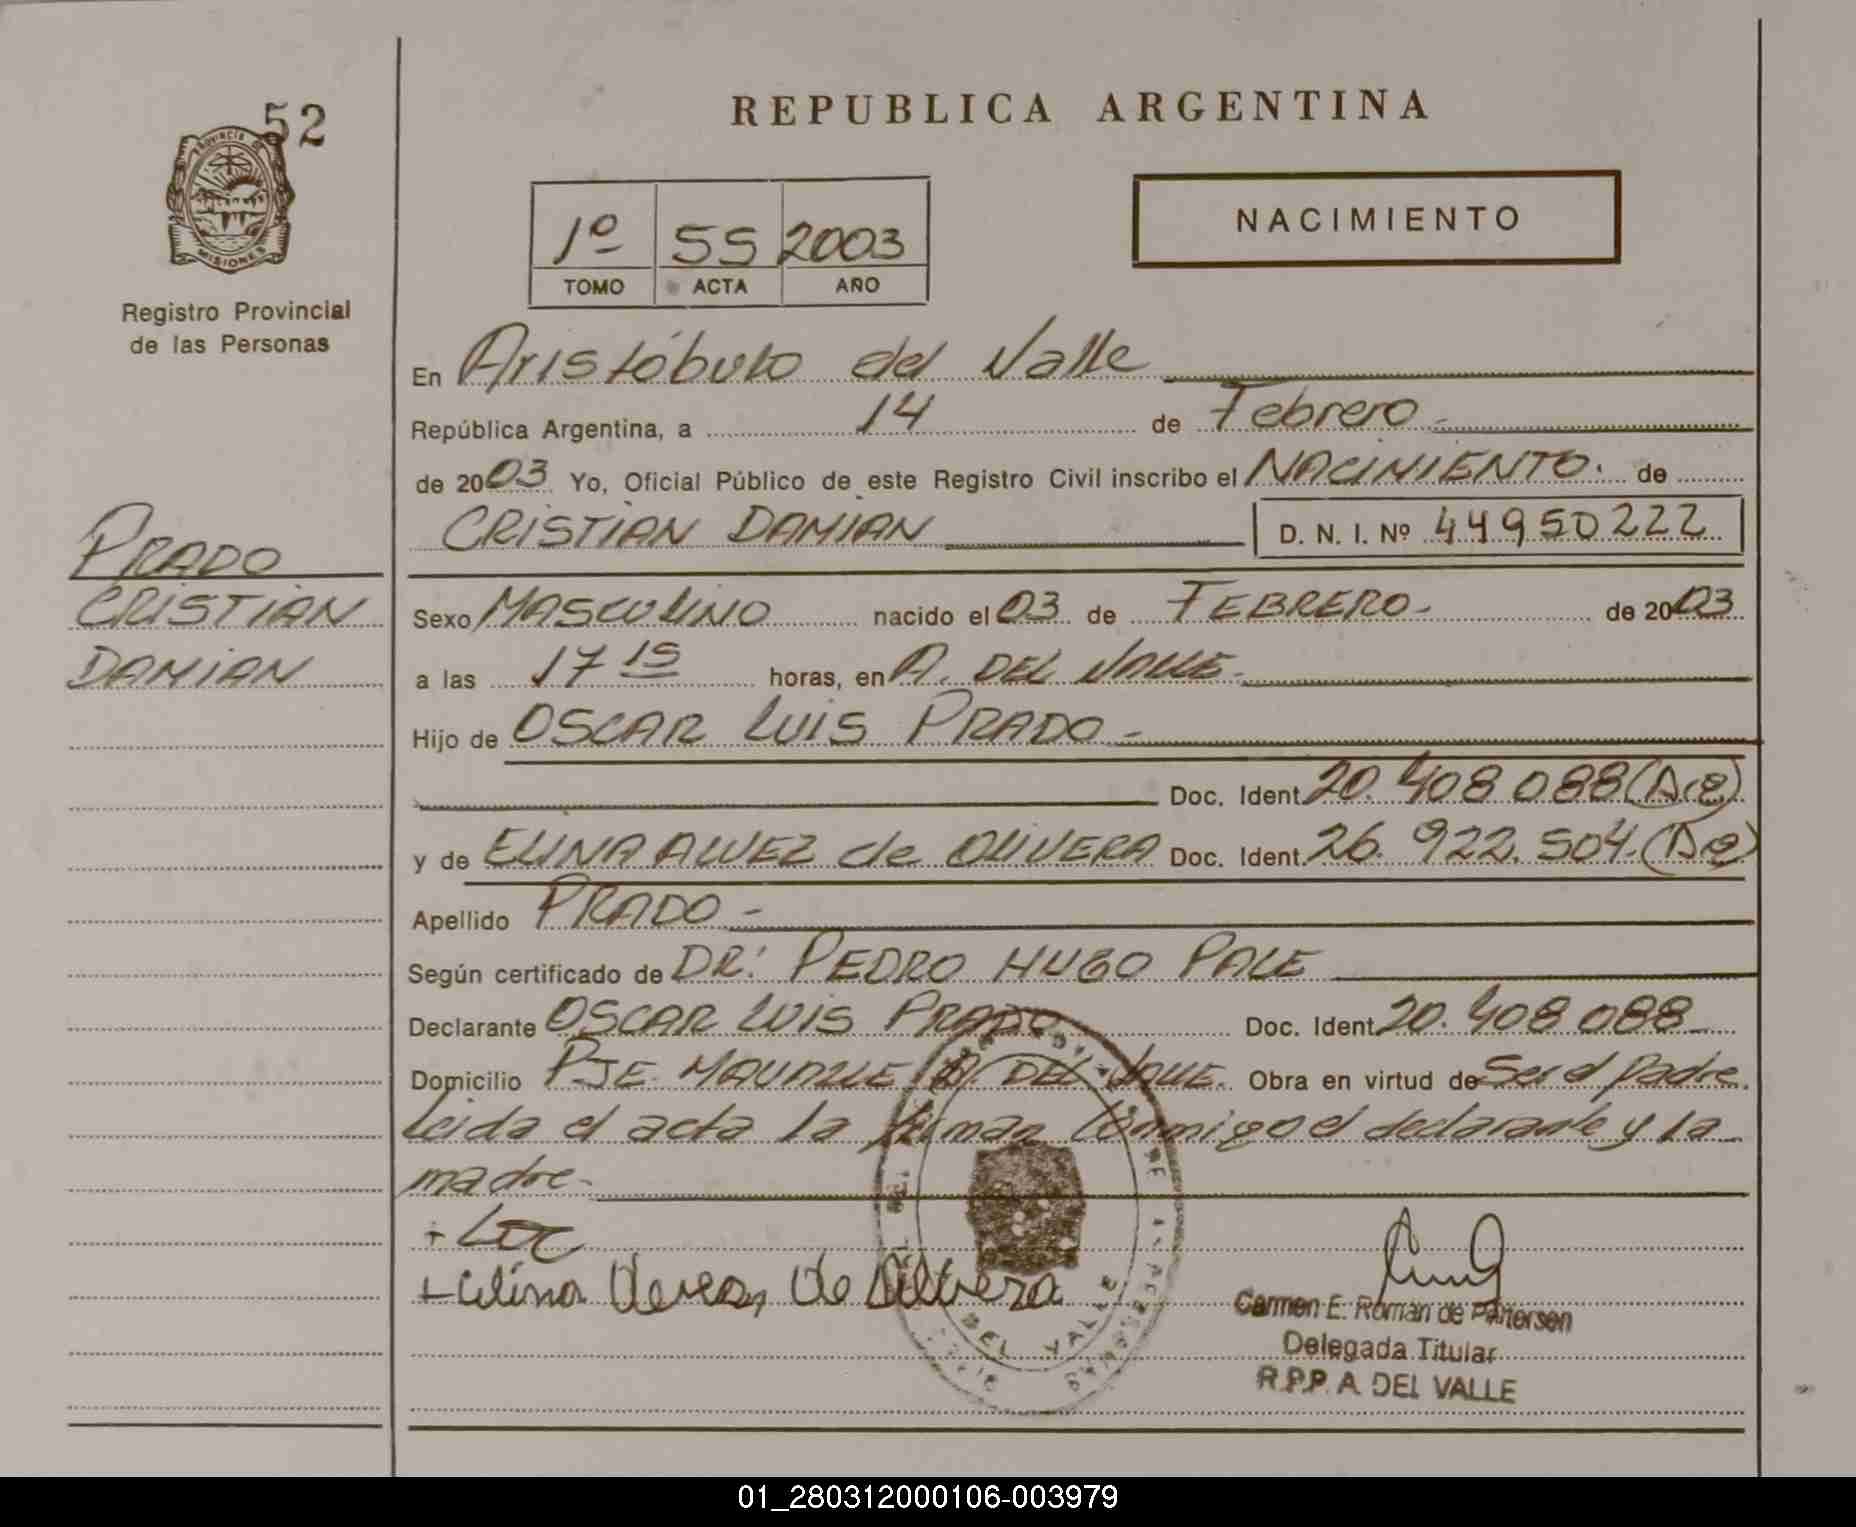 52
PROVINCIA DE
MISIONES
Registro Provincial
de las Personas
REPUBLICA ARGENTINA
1º 55 2003
TOMO ACTA AÑO
NACIMIENTO
En Aristóbulo del Valle
República Argentina, a 14 de Febrero.
de 2003 Yo, Oficial Público de este Registro Civil inscribo el NACIMIENTO. de
CRISTIAN DAMIAN D. N. I. Nº 44950222
PRADO
CRISTIAN
DAMIAN
Sexo MASCULINO nacido el 03 de FEBRERO. de 2003
a las 17 15 horas, en A. DEL VALLE.
Hijo de OSCAR LUIS PRADO.
Doc. Ident. 20.408 088
y de ELINA ALVEZ de OLIVERA Doc. Ident. 26.922.504.
Apellido PRADO.
Según certificado de DR: PEDRO HUGO PALE
Declarante OSCAR LUIS PRADO Doc. Ident. 20.408 088
Domicilio PJE. A. DEL VALLE. Obra en virtud de Ser el padre.
Leida el acta la firman conmigo el declarante y la
madre.
de
Carmen E. Román de
Delegada Titular
R.P.P. A DEL VALLE
DEL VALLE
01_280312000106-003979